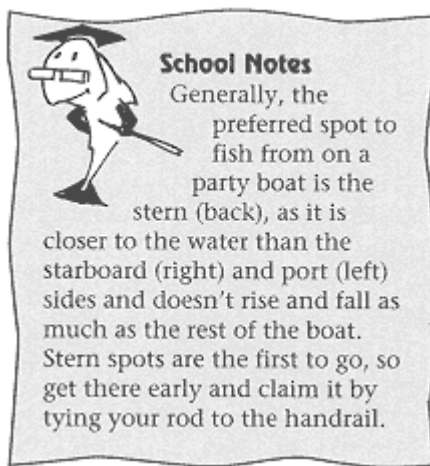 School Notes
Generally, the
preferred spot to
fish from on a
party boat is the
stern (back), as it is
closer to the water than the
starboard (right) and port (left)
sides and doesn't rise and fall as
much as the rest of the boat.
Stern spots are the first to go, so
get there early and claim it by
tying your rod to the handrail.